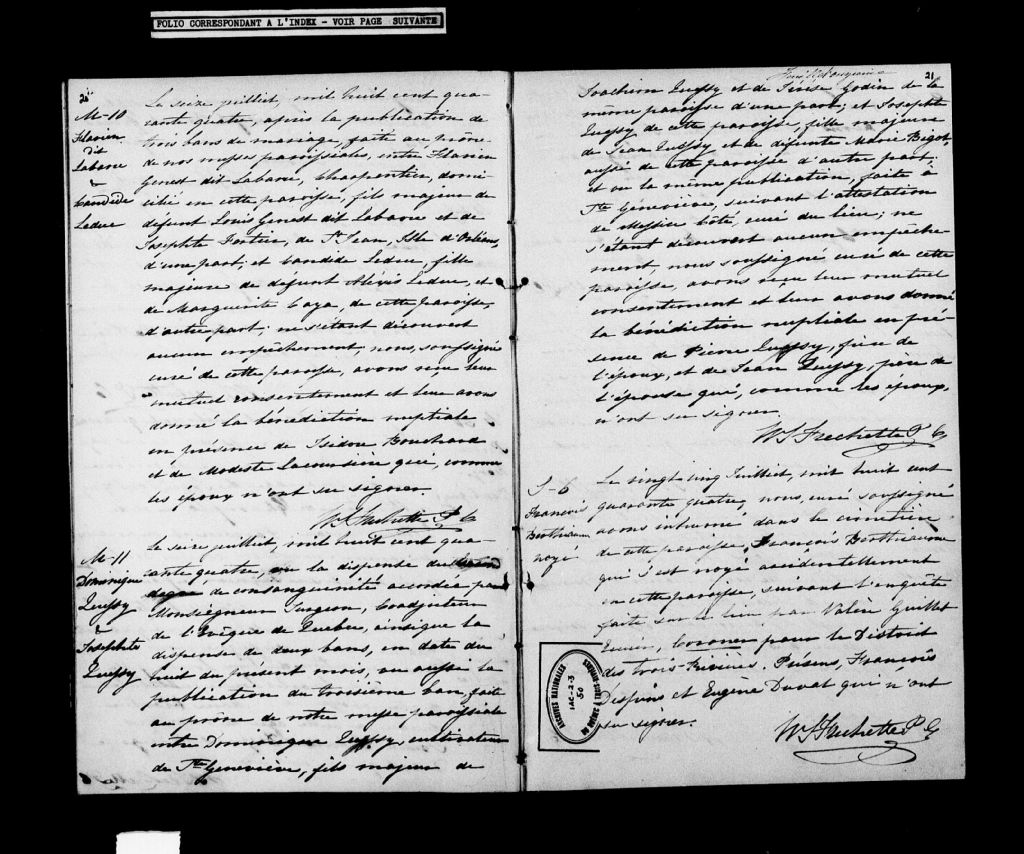 FOLIO CORRESPONDANT A L'INDEX - VOIR PAGE SUIVANTE
20
M-10
Flavien
dit
Labarre
&
Candide
Leduc
Le seize juillet, mil huit cent qua-
rante quatre, après la publication de
trois bans de mariage, faite au prône
de nos messes paroissiales, entre Flavien
Genest dit Labarre, Charpentier, domi-
cilié en cette paroisse, fils majeur de
défunt Louis Genest dit Labarre et de
Josephte Fortier, de St Jean, Isle d'Orléans,
d'une part; et Candide Leduc, fille
majeure de défunt Alexis Leduc, et
de Marguerite Caya, de cette paroisse,
d'autre part; ne s'étant découvert
aucun empêchement, nous, soussigné
curé de cette paroisse, avons reçu leur
mutuel consentement et leur avons
donné la bénédiction nuptiale
en présence de Isidore Bouchard
et de Modeste Lacoursière qui, comme
les époux n'ont su signer.
W S Frechette P. C
M-11
Dominique
Quessy
&
Josephte
Quessy
Le seize juillet, mil huit cent qua-
rante quatre, vu la dispense du
degré de consanguinité accordée par
Monseigneur Turgeon, Coadjuteur
de l'Evêque de Quebec, ainsi que la
dispense de deux bans, en date du
huit du présent mois, vu aussi la
publication du troisième ban, faite
au prône de notre messe paroissiale
entre Dominique Quessy, cultivateur
de Ste Geneviève, fils majeur de
21
Joachim Quessy et de Térèse Godin de la
même paroisse d'une part; et Josephte
Quessy de cette paroisse, fille majeure
de Jean Quessy et de défunte Marie Bigot,
aussi de cette paroisse d'autre part.
et vu la même publication, faite à
Ste Geneviève, suivant l'attestation
de Messire Côté, curé du lieu; ne
s'étant découvert aucun empêche-
ment, nous soussigné curé de cette
paroisse, avons reçu leur mutuel
consentement et leur avons donné
la bénédiction nuptiale en pré-
sence de Pierre Quessy, frère de
l'époux, et de Jean Quessy, père de
l'épouse qui, comme les époux,
n'ont su signer.
W S Frechette P C
S-6
François
Berthiaume
noyé
Le vingt cinq Juillet, mil huit cent
quarante quatre, nous, curé soussigné
avons inhumé dans le cimetière
de cette paroisse, François Berthiaume
qui s'est noyé accidentellement
en cette paroisse, suivant l'enquête
faite sur le lieu par Valère Guillet
Ecuier, Coroner pour le District
des trois-Rivières. Présens, François
Despins et Eugène Duval qui n'ont
su signer.
W S Frechette P C
ARCHIVES NATIONALES
IAC-2-3
50